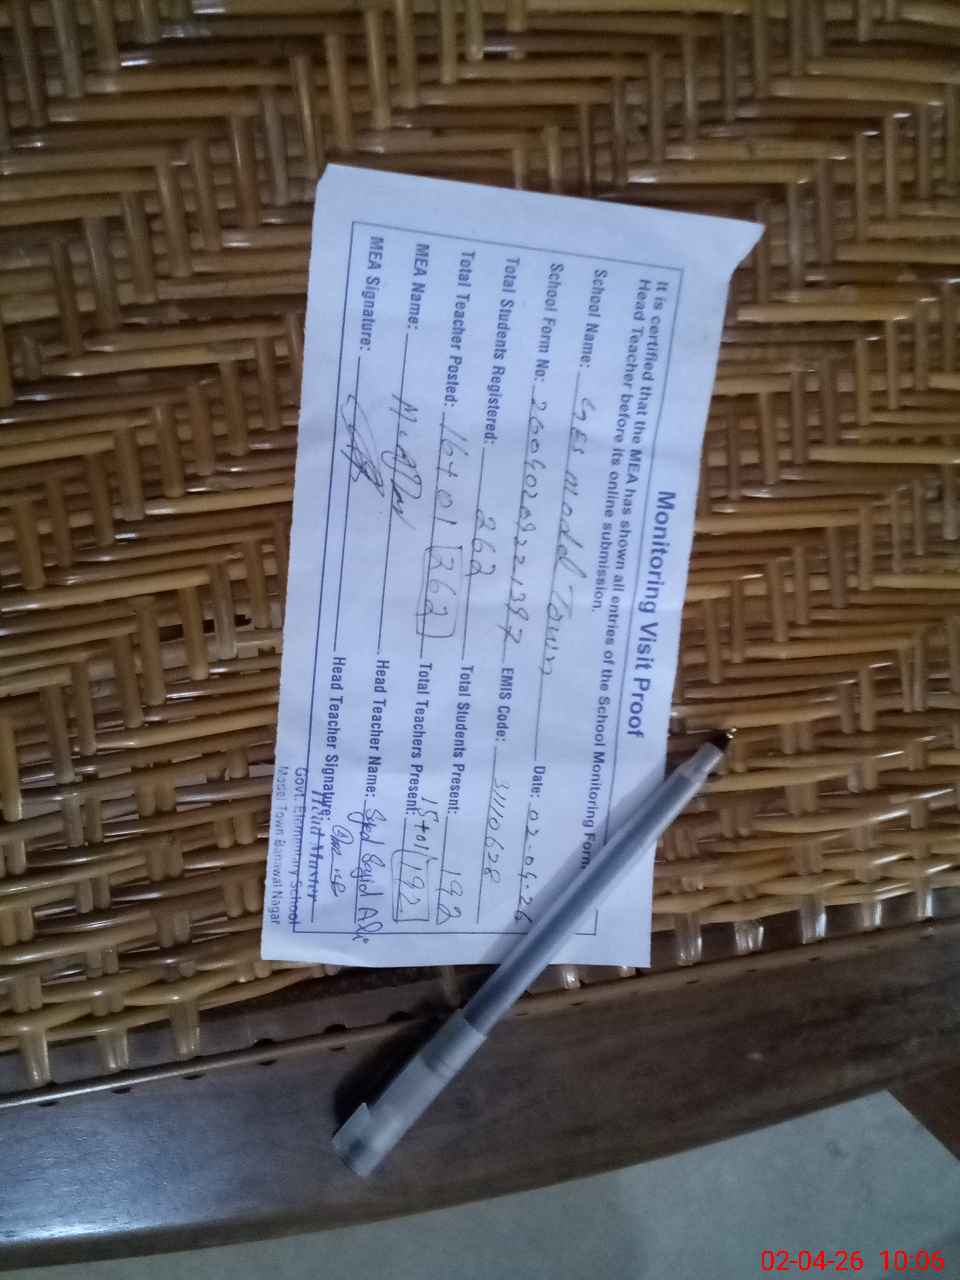 Monitoring Visit Proof
It is certified that the MEA has shown all entries of the School Monitoring Form
Head Teacher before its online submission.
School Name: GES Model Town Date: 02-04-26
School Form No: 26040209221397 EMIS Code: 31110628
Total Students Registered: 262 Total Students Present: 192
Total Teacher Posted: 16+01 262 Total Teachers Present: 15+01 192
MEA Name: Head Teacher Name: Syed Sajid Ali
MEA Signature: Head Teacher Signature:
Head Master
Govt. Elementary School
Model Town Bahawal Nagar
02-04-26 10:06